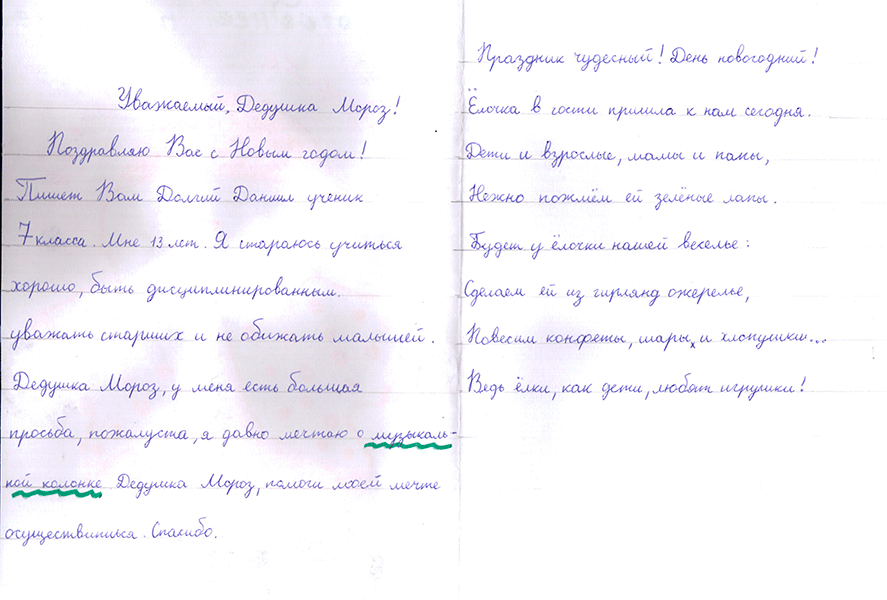 Уважаемый, Дедушка Мороз!
Поздравляю Вас с Новым годом!
Пишет Вам Долгий Даниил ученик
7 класса. Мне 13 лет. Я стараюсь учиться
хорошо, быть дисциплинированным.
уважать старших и не обижать малышей.
Дедушка Мороз, у меня есть большая
просьба, пожалуста, я давно мечтаю о музыкаль-
ной колонке Дедушка Мороз, помоги моей мечте
осуществиться. Спасибо.
Праздник чудесный! День новогодний!
Ёлочка в гости пришла к нам сегодня.
Дети и взрослые, мамы и папы,
Нежно пожмём ей зелёные лапы.
Будет у ёлочки нашей веселье:
Сделаем ей из гирлянд ожерелье,
Повесим конфеты, шары, и хлопушки...
Ведь ёлки, как дети, любят игрушки!